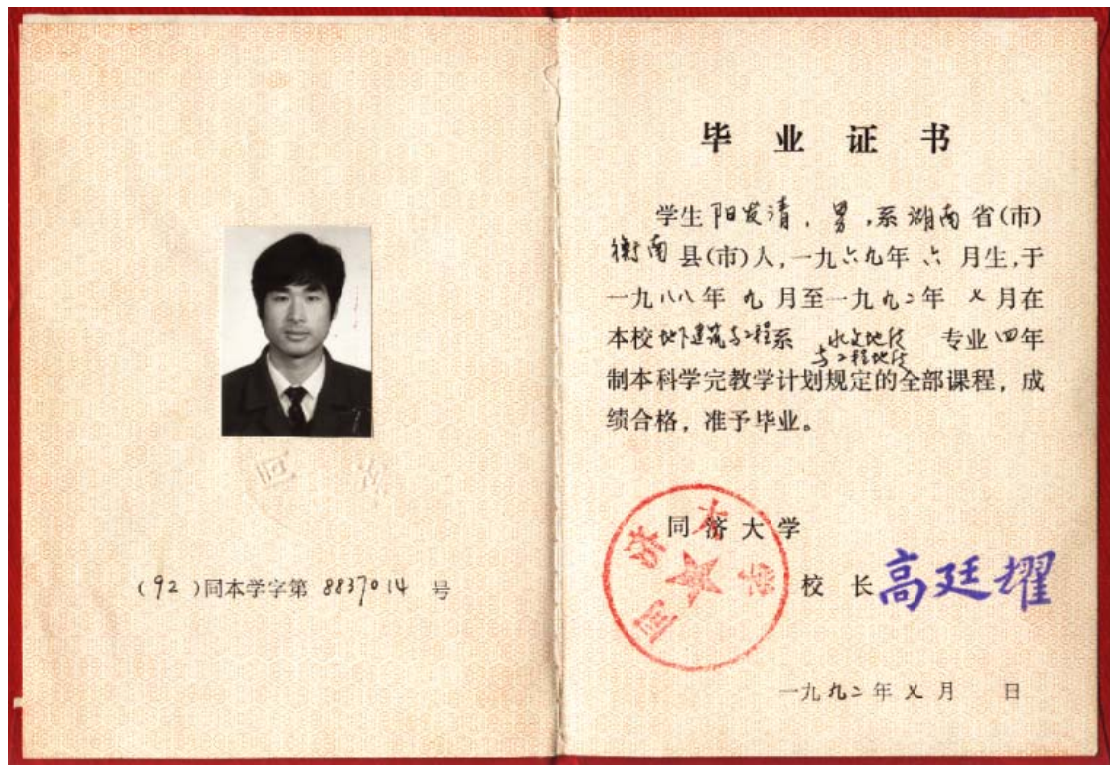 (92)同本学字第 8837014 号
毕业证书
学生阳发清，男，系湖南省(市)
衡南县(市)人，一九六九年六月生，于
一九八八年九月至一九九二年乂月在
本校地下建筑与工程系 水文地质与工程地质 专业四年
制本科学完教学计划规定的全部课程，成
绩合格，准予毕业。
同济大学
同济大学
校长高廷耀
一九九二年乂月 日